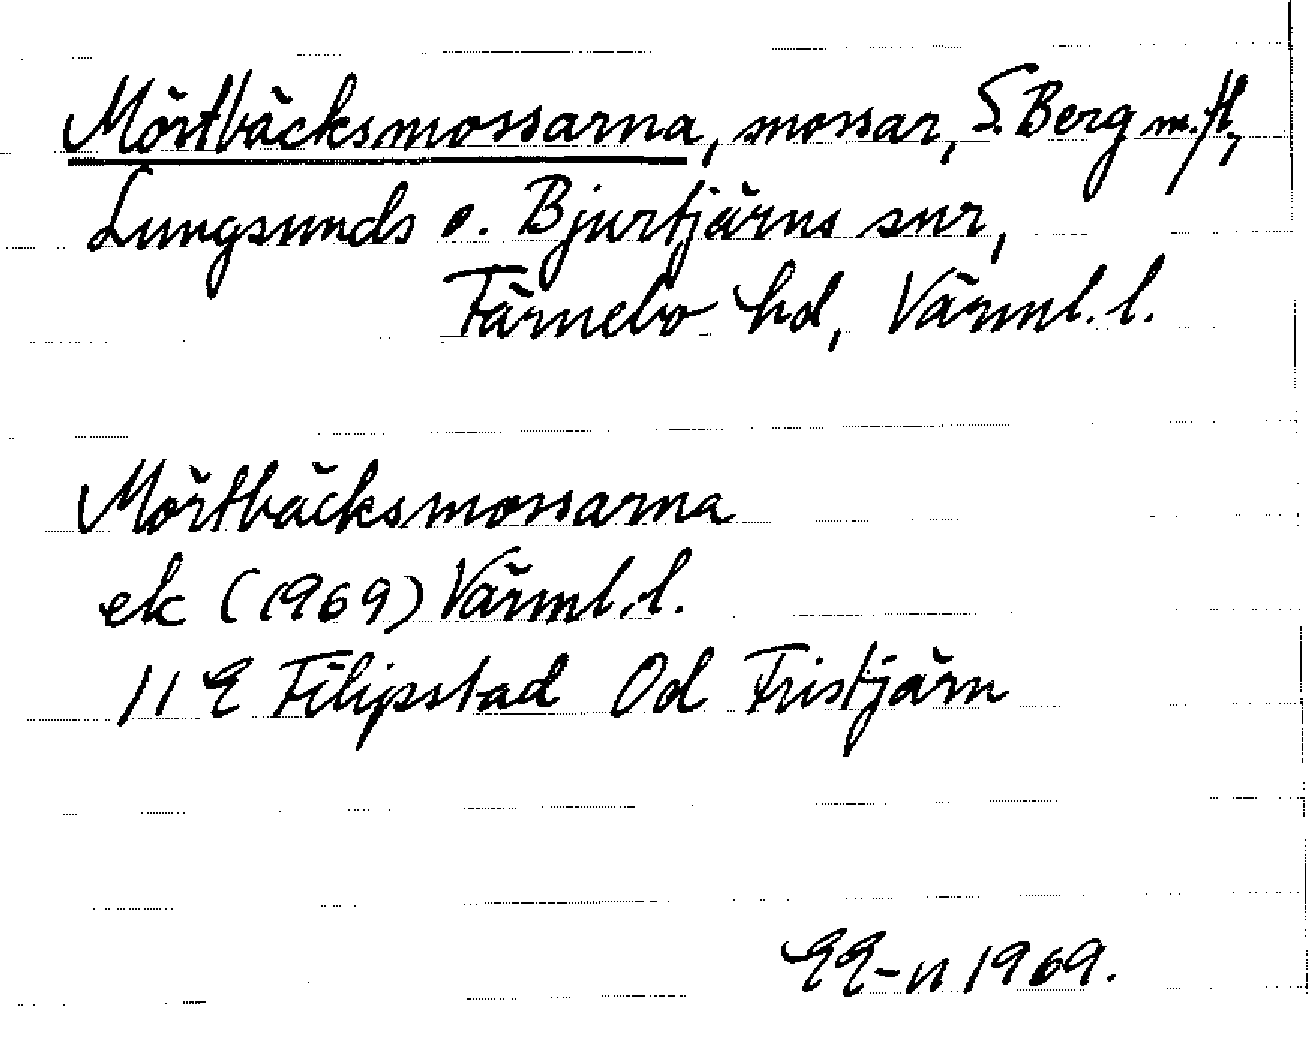 Mörtbäcksmossarna, mossar, S. Berg m.fl,
Lungsunds o. Bjurtjärns snr,
Färnebo hd, Värml. l.
Mörtbäcksmossarna
ek (1969) Värml. l.
11 E Filipstad Od Fristjärn
EE-n 1969.